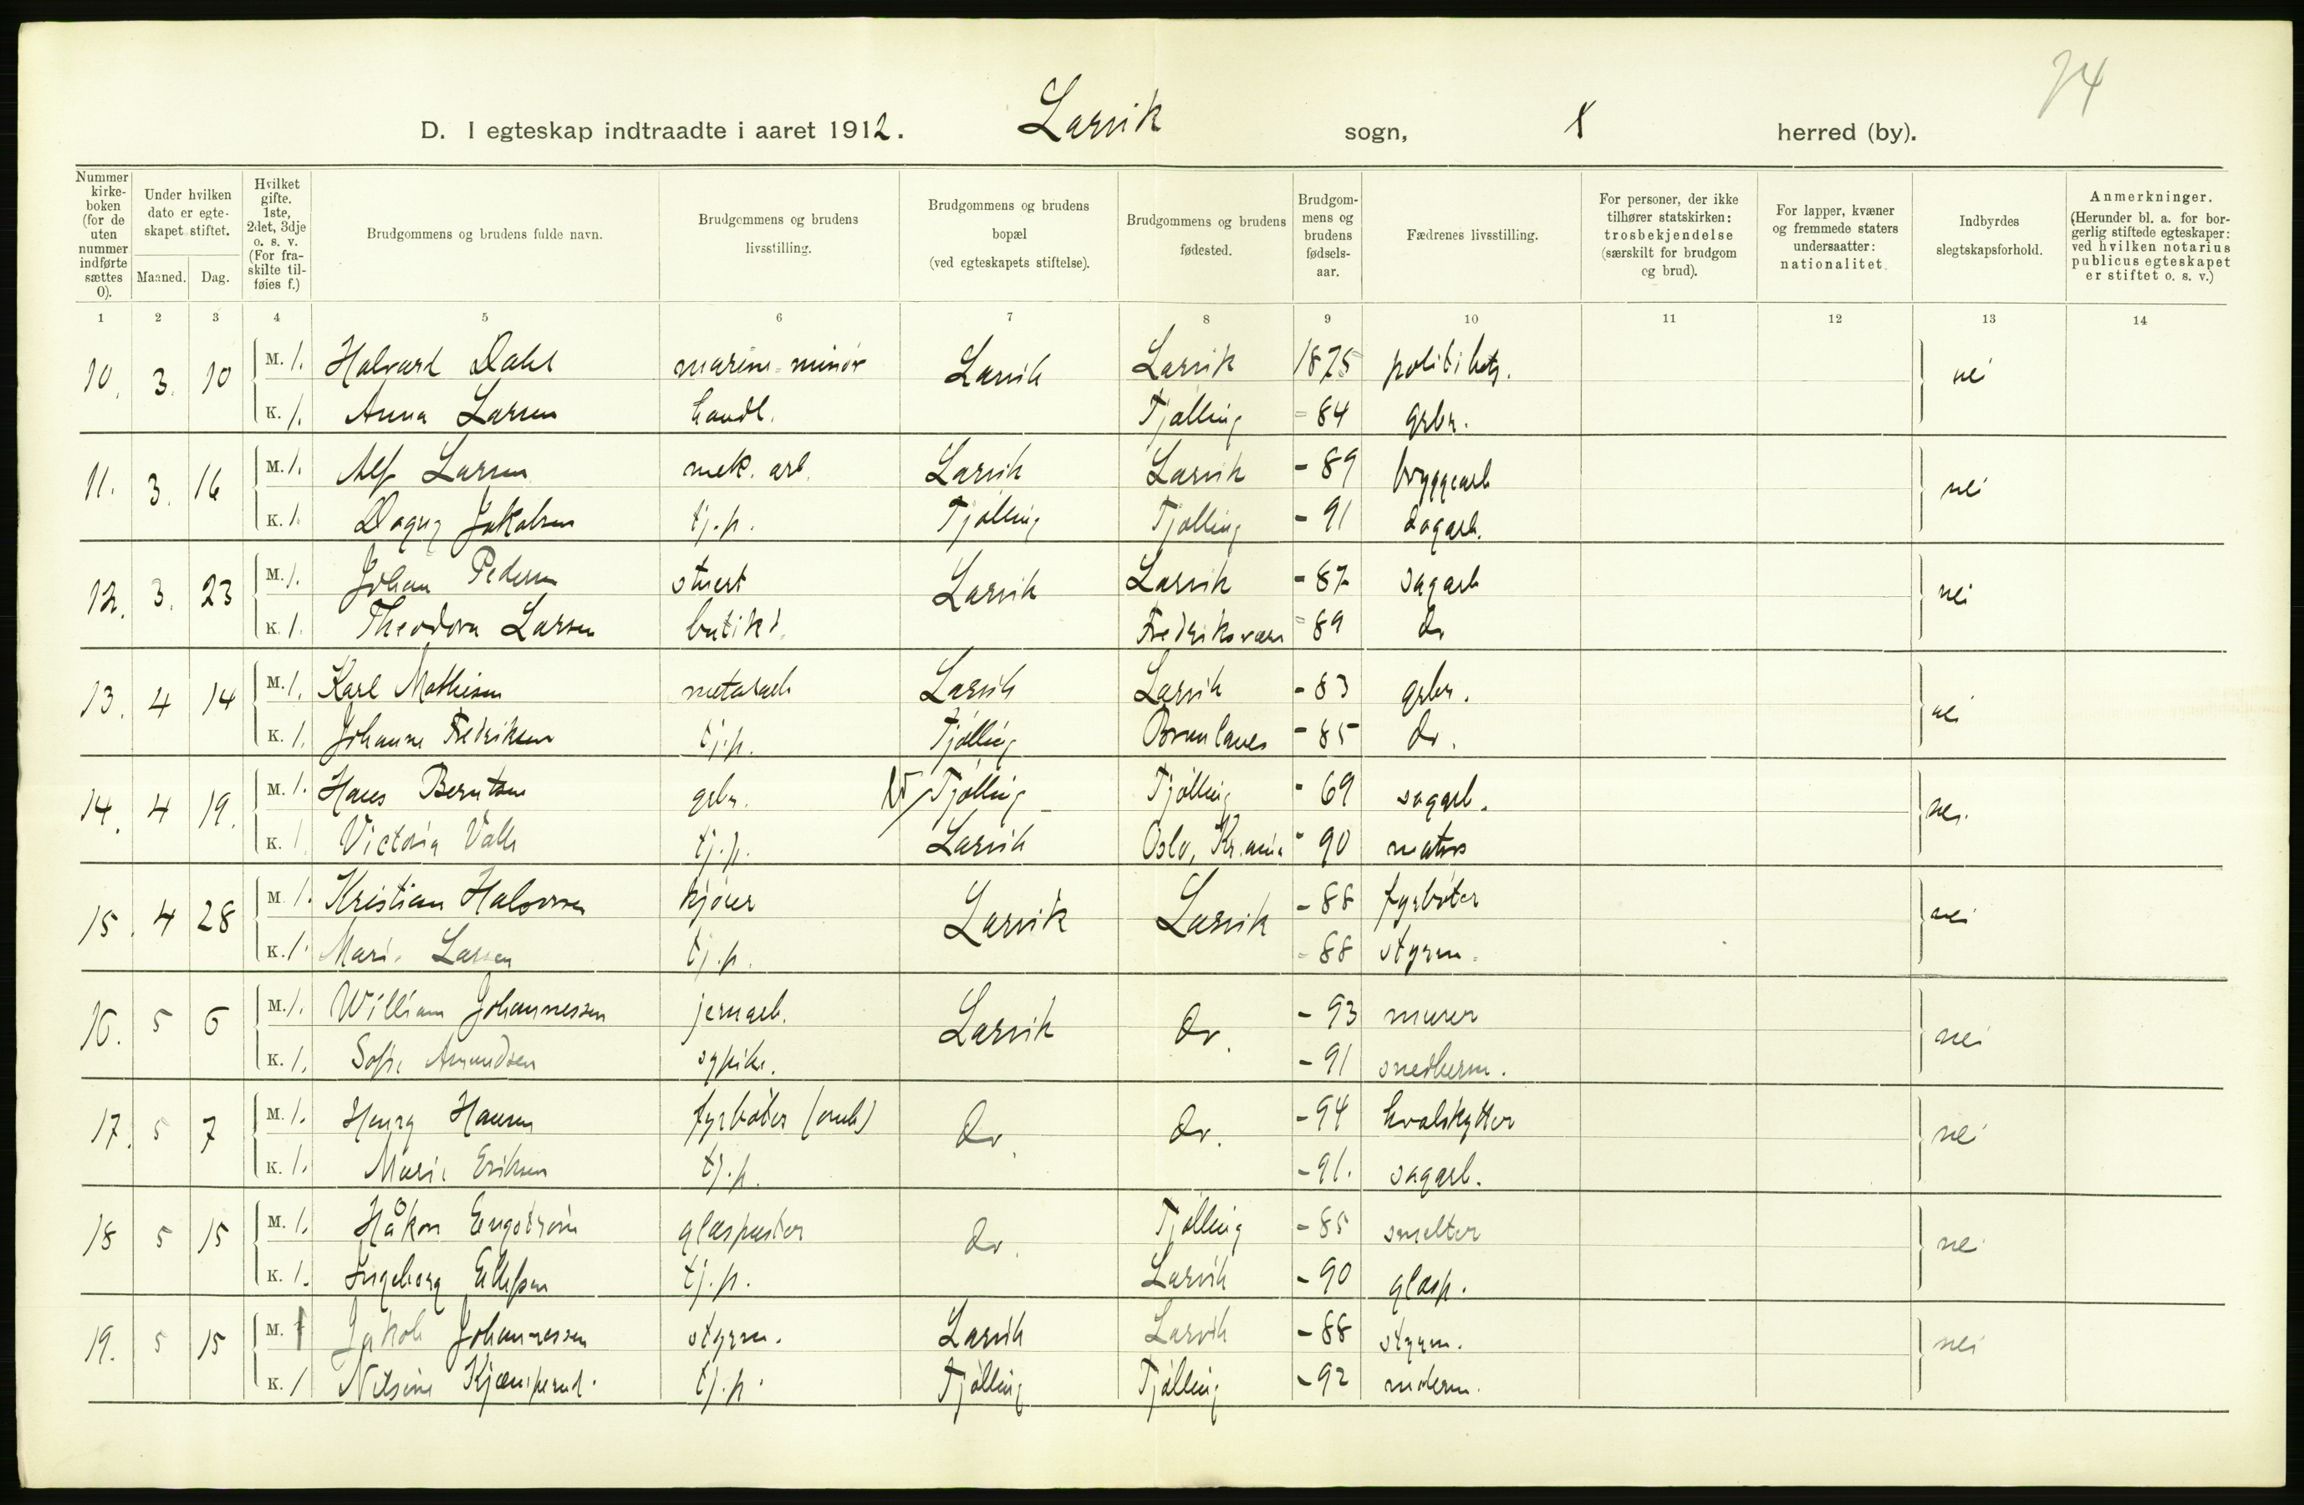 74
D. I egteskap indtraadte i aaret 1912. Larvik sogn, herred (by).
Nummer kirkeboken (for de uten nummer indførte sættes 0).
Under hvilken dato er egteskapet stiftet.
Maaned. Dag.
Hvilket gifte. 1ste, 2det, 3dje o. s. v. (For fraskilte tilføies f.)
Brudgommens og brudens fulde navn.
Brudgommens og brudens livsstilling.
Brudgommens og brudens bopæl (ved egteskapets stiftelse).
Brudgommens og brudens fødested.
Brudgommens og brudens fødselsaar.
Fædrenes livsstilling.
For personer, der ikke tilhører statskirken: trosbekjendelse (særskilt for brudgom og brud).
For lapper, kvæner og fremmede staters undersaatter: nationalitet.
Indbyrdes slegtskapsforhold.
Anmerkninger. (Herunder bl. a. for borgerlig stiftede egteskaper: ved hvilken notarius publicus egteskapet er stiftet o. s. v.)
1 2 3 4 5 6 7 8 9 10 11 12 13 14
10. 3. 10 M. 1. Halvard Dahl marine-minør Larvik Larvik 1875 politibetj. nei
K. 1. Anna Larsen handl. Tjølling = 84 grbr.
11. 3. 16 M. 1. Alf Larsen mek. arb. Larvik Larvik - 89 bryggearb nei
K. 1. Dagny Jakobsen tj.p. Tjølling Tjølling - 91 dagarb.
12. 3. 23 M. 1. Johan Pedersen stuert Larvik Larvik - 87 sagarb nei
K. 1. Theodora Larsen butikd. Fredriksværn = 89 do
13. 4 14 M. 1. Karl Mathisen metalarb Larvik Larvik - 83 grbr. nei
K. 1. Johanne Fredriksen tj.p. Tjølling Brunlanes - 85 do.
14. 4 19. M. 1. Hans Berntsen grbr. Tjølling Tjølling - 69 sagarb. nei.
K. 1. Victoria Valle tj.p. Larvik Oslo, Kr.ania - 90 matros
15. 4 28 M. 1. Kristian Halvorsen kjører Larvik Larvik - 88 fyrbøter nei
K. 1. Marie Larsen tj.p. - 88 styrm.
16. 5 6 M. 1. William Johannessen jernarb. Larvik do. - 93 murer nei
K. 1. Sofie Amundsen sypike. - 91 snedkerm.
17. 5 7 M. 1. Henry Hansen fyrbøter do. do. - 94 hvalskytter nei
K. 1. Marie Eriksen tj.p. - 91. sagarb.
18 5 15 M. 1. Håkon Engstrøm glaspuster do. Tjølling - 85 smelter nei
K. 1. Ingeborg Ellefsen tj.p. Larvik - 90 glasp.
19. 5 15 M. 1 Jakob Johannessen styrm. Larvik Larvik - 88 styrm. nei
K. 1 Nilsine Kjæmperud. tj.p. Tjølling Tjølling - 92